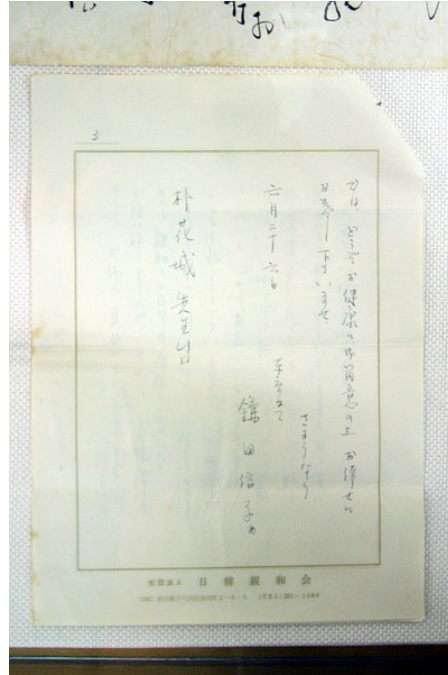 3
では、どうぞお健康に御留意の上 お倖せに
お暮し下さいませ
さようなら
六月二十六日
東京にて
鎌田信子
朴花城 先生님
社団法人 日韓親和会